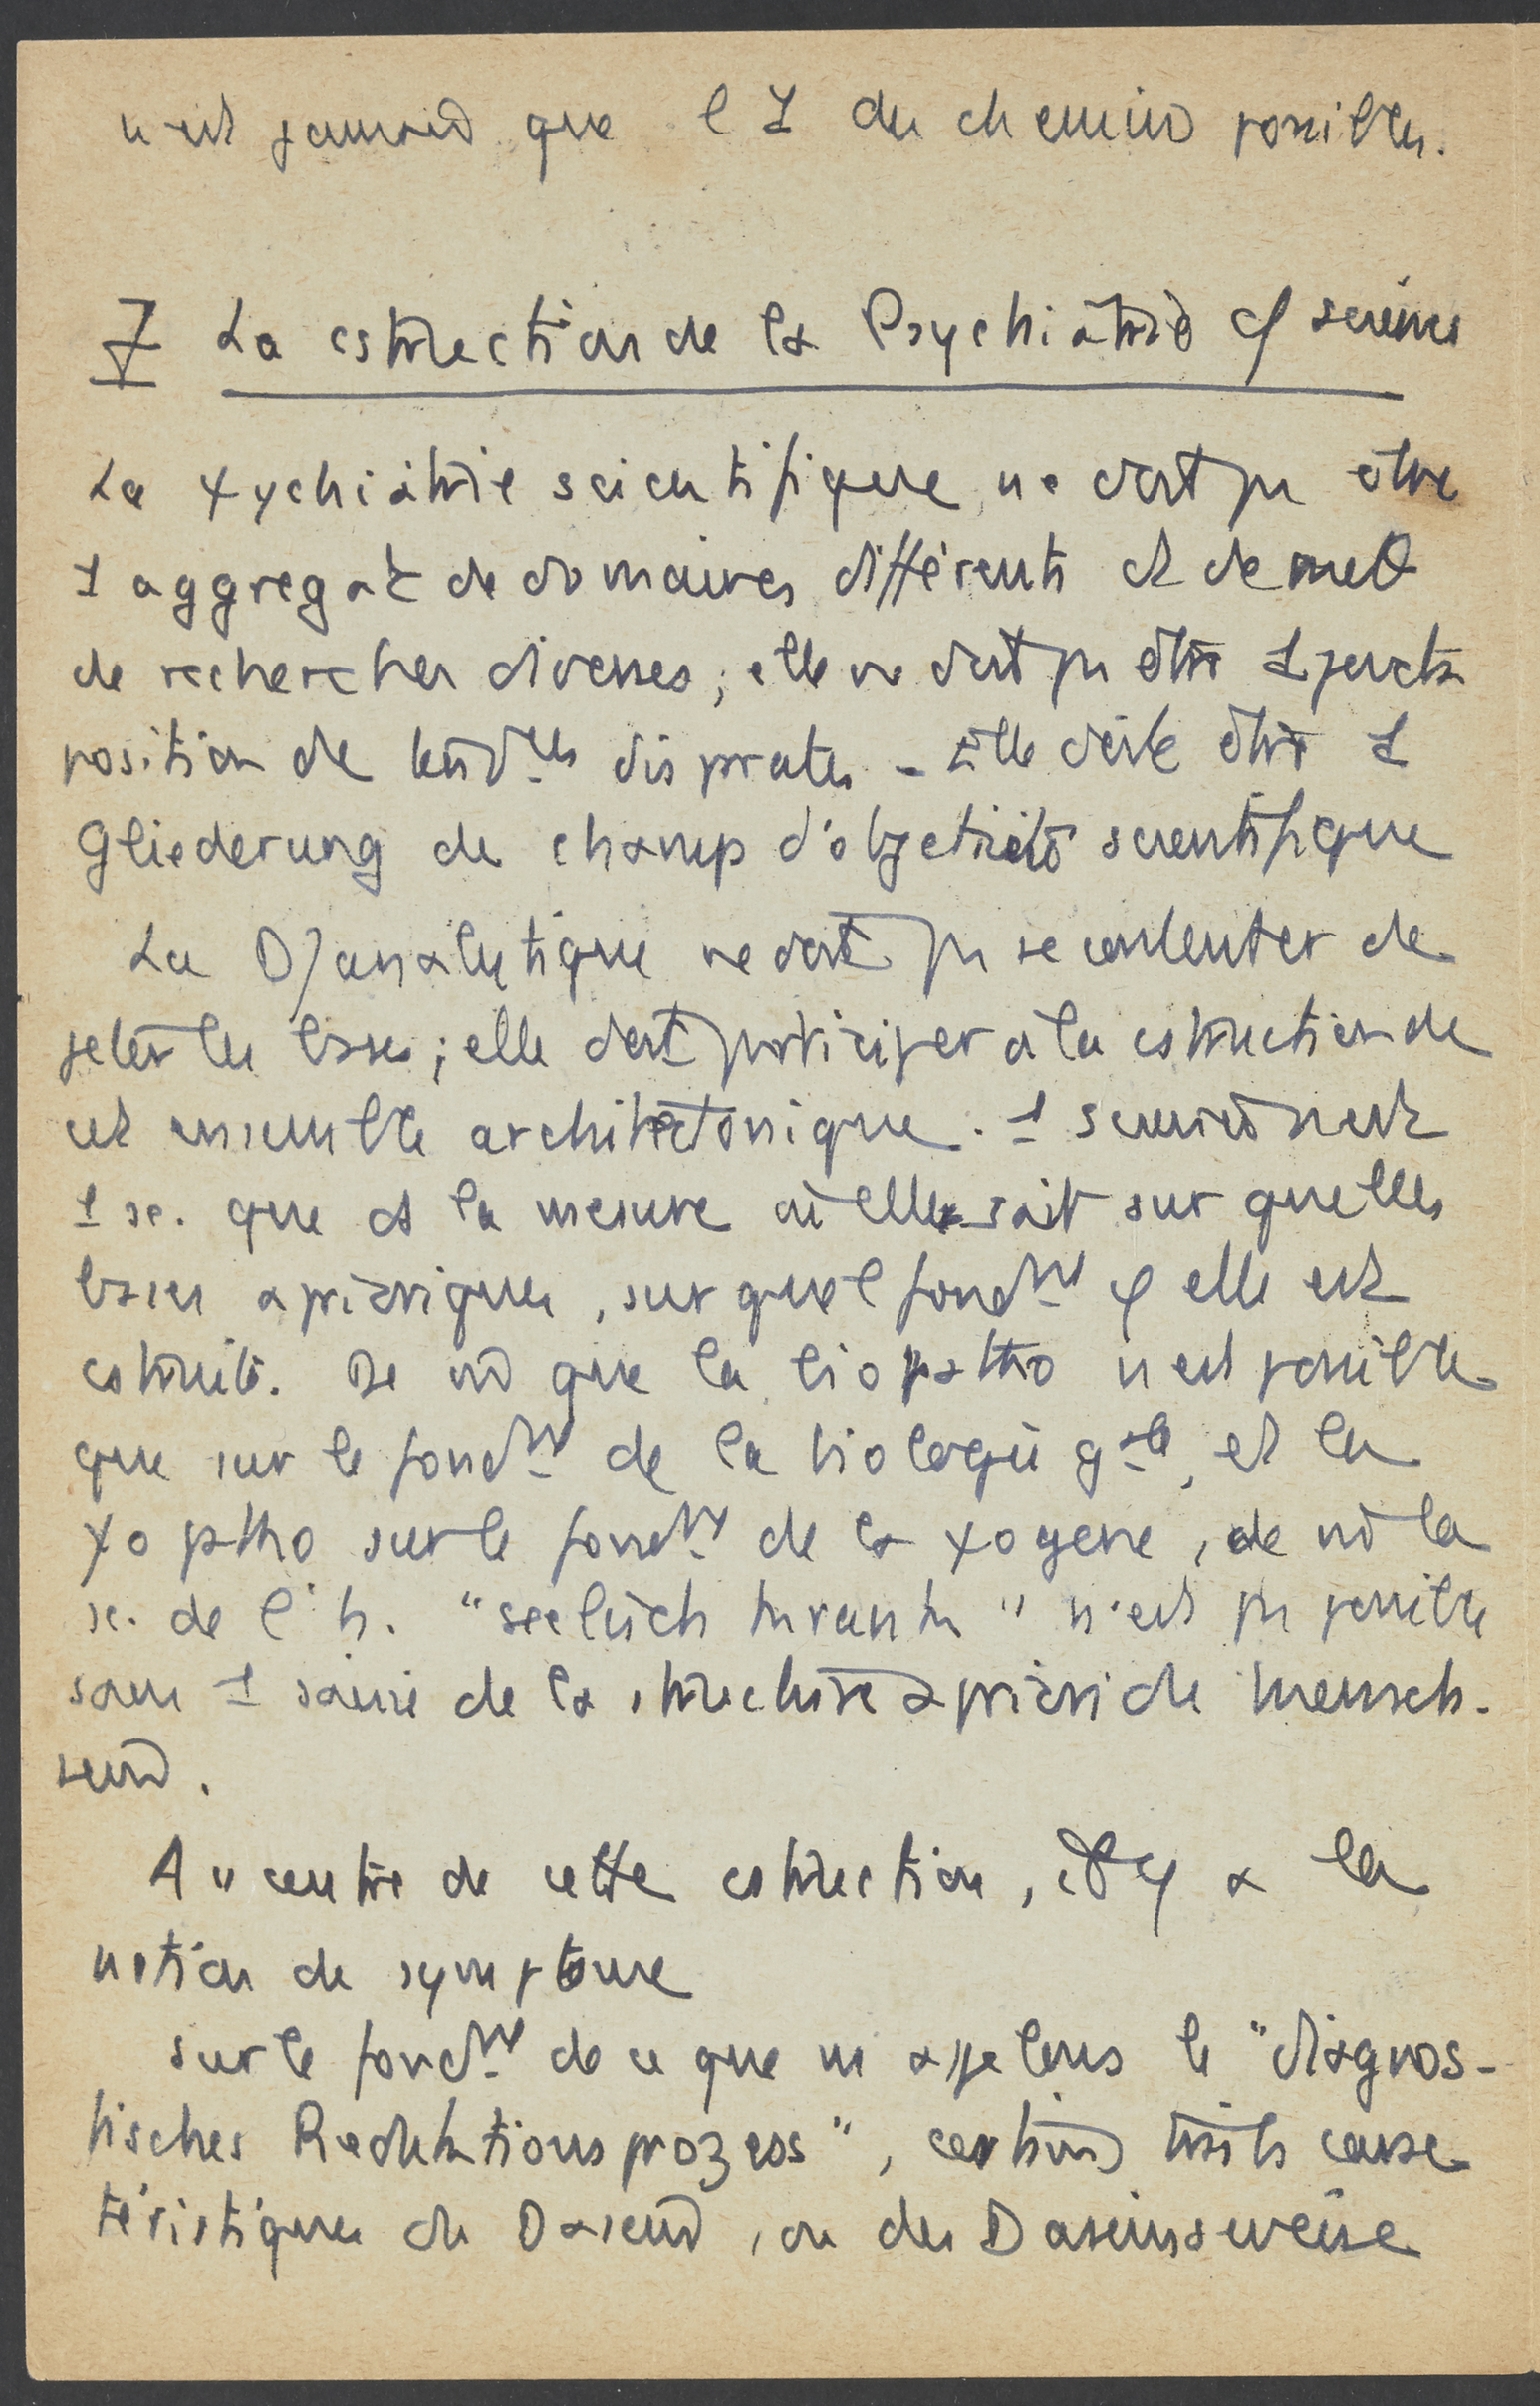 n'est jamais que l'1 des chemins possibles.
I La cstruction de la Psychiatrie cf science
La ψychiatrie scientifique ne doit pas être
1 aggregat de domaines différents et de
de recherches diverses ; elle ne doit pas être 1 juxta
position de disparates - Elle doit être 1
Gliederung du champ d'objectivité scientifique
La D/analytique ne doit pas se contenter de
jeter les bases ; elle doit participer à la cstruction de
cet ensemble architectonique. 1 science n'est
1 sc. que ds la mesure où elle sait sur quelles
bases aprioriques, sur quel fondmt φ elle est
cstruite. De m que la biopatho n'est possible
que sur le fondmt de la biologie gale, et la
ψopatho sur le fondmt de la ψogene, de m la
sc. de l'h. "seelisch kranken" n'est pas possible
sans 1 saisie de la structure a priori du Mensch-
sein.
Au centre de cette cstruction, il y a la
notion de symptome
sur le fondmt de ce que ns appelons le "diagnos-
tisches Reduktionsprozess", certains traits carac
téristiques du Dasein, ou des Daseinsweise